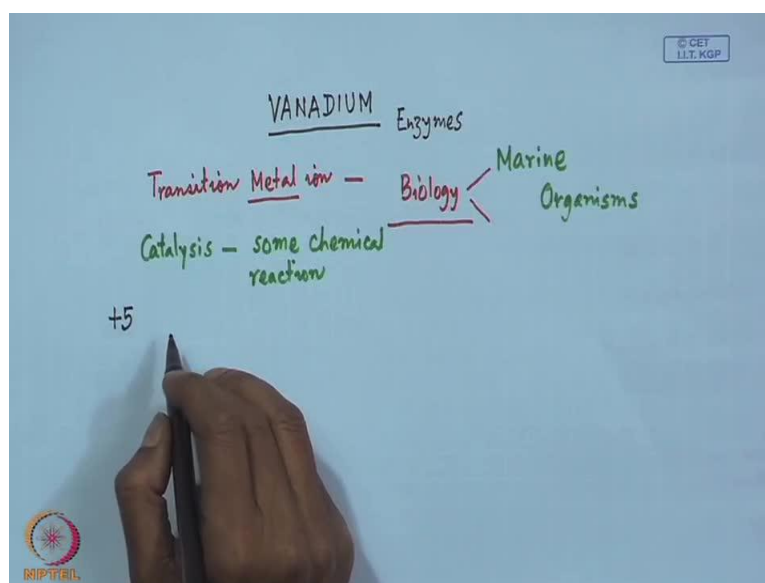 © CET
I.I.T. KGP
VANADIUM Enzymes
Transition Metal ion — Biology
Marine
Organisms
Catalysis — some chemical
reaction
+5
NPTEL